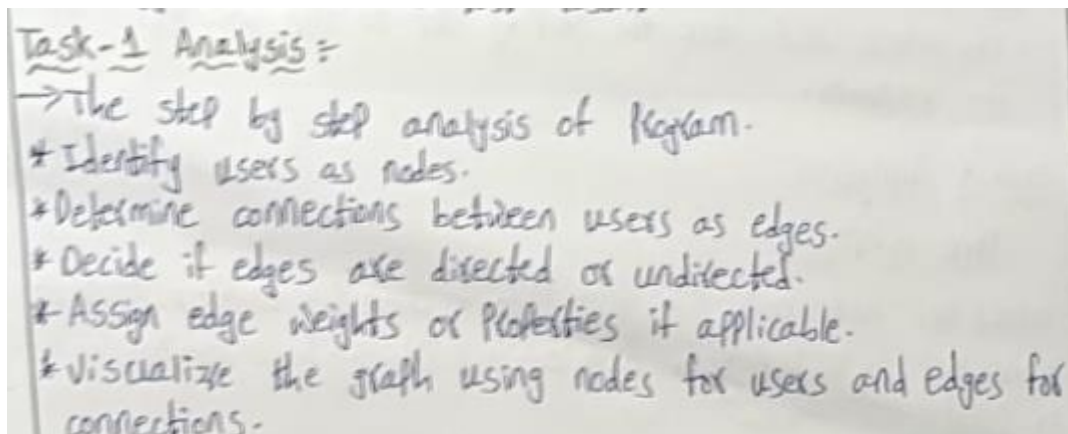 Task-1 Analysis :-
→The step by step analysis of Program.
* Identify users as nodes.
* Determine connections between users as edges.
* Decide if edges are directed or undirected.
* Assign edge weights or Properties if applicable.
* Viscualize the graph using nodes for users and edges for
connections.